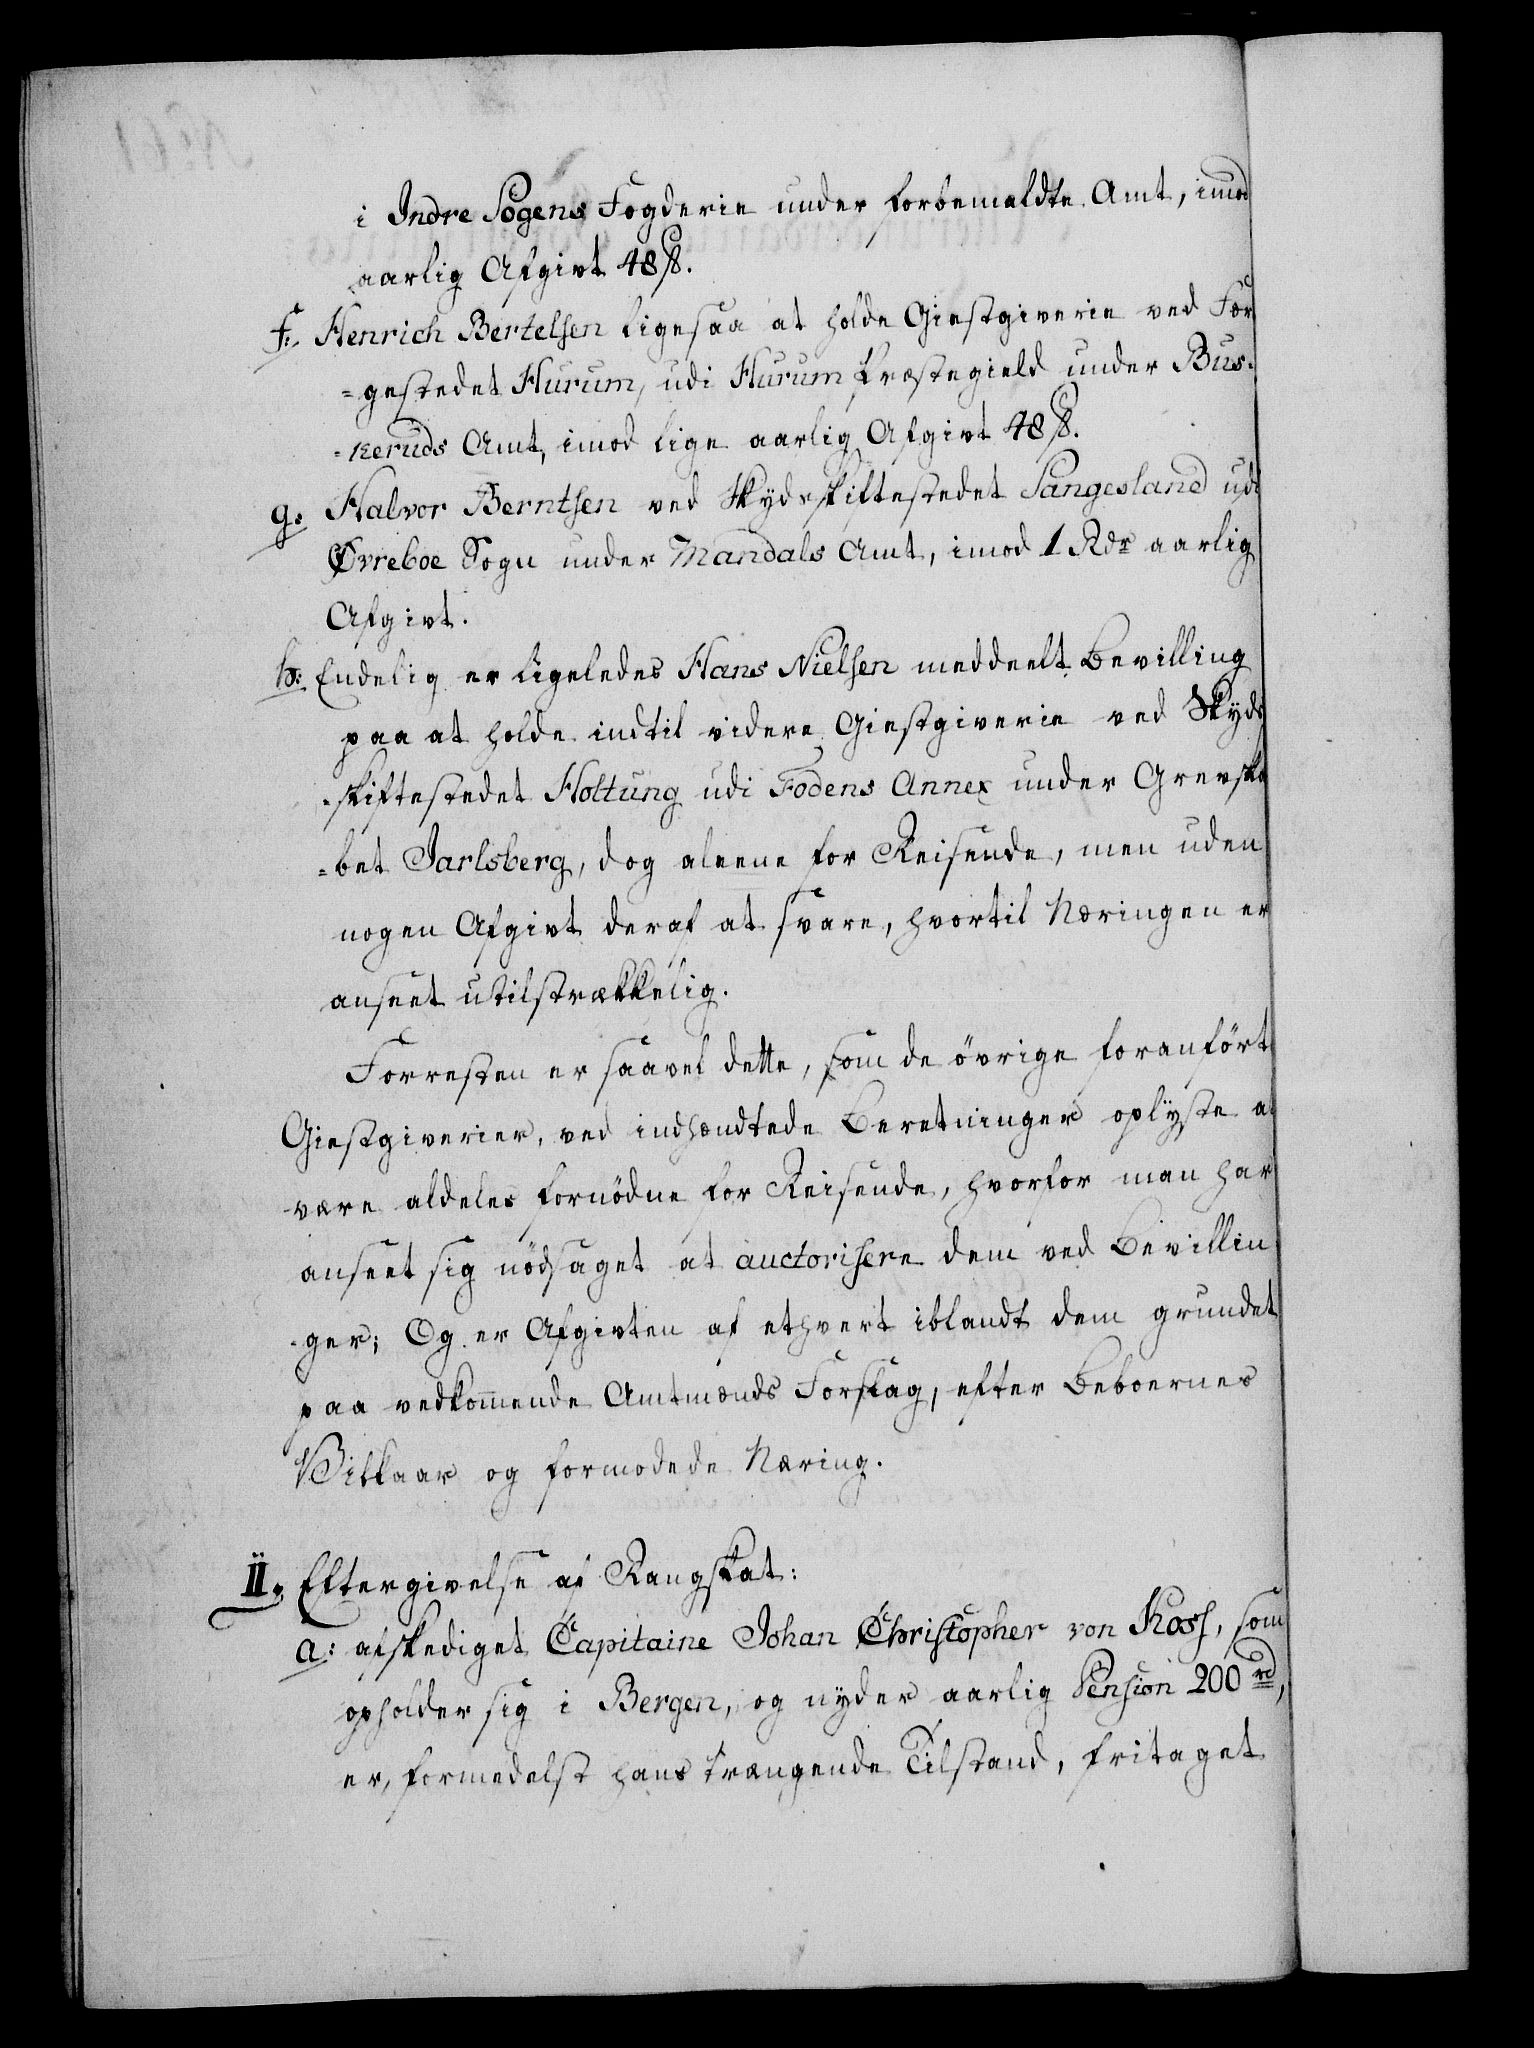 i Indre Sogens Fogderie under forbemeldte Amt, imod
aarlig Afgivt 48 ß.
f. Henrich Bertelsen ligesaa at holde Giestgiverie ved Fær
=gestedet Hurum, udi Hurum Præstegield under Bus=
=keruds Amt, imod lige aarlig Afgivt 48 ß.
g. Halvor Berntsen ved Skydsskiftestedet Sangesland udi
Øvreboe Sogn under Mandals Amt, imod 1 Rdr aarlig
Afgivt.
h: Endelig er ligeledes Hans Nielsen meddeelt Bevilling
paa at holde indtil videre Giestgiverie ved Skyds
=skiftestedet Holtung udi Fodens Annex under Grevska
=bet Jarlsberg, dog aleene for Reisende, men uden
nogen Afgivt deraf at svare, hvortil Næringen er
anseet utilstrækkelig.
Forresten er saavel dette, som de övrige foranfört
Giestgiverier, ved indhændtede Beretninger oplÿste a
være aldeles fornödne for Reisende, hvorfor man har
anseet sig nödsaget at auctorisere dem ved Bevillin
=ger; Og er Afgivten af ethvert iblandt dem grundet
paa vedkom̅ende Amtmænds Forslag, efter Beboernes
Vilkaar og formodede Næring.
II. Eftergivelse af Rangskat:
a: afskediget Capitaine Johan Christopher von Koss, som
opholder sig i Bergen, og nÿder aarlig Pension 200 rd,
er, formedelst hans trængende Tilstand, fritaget